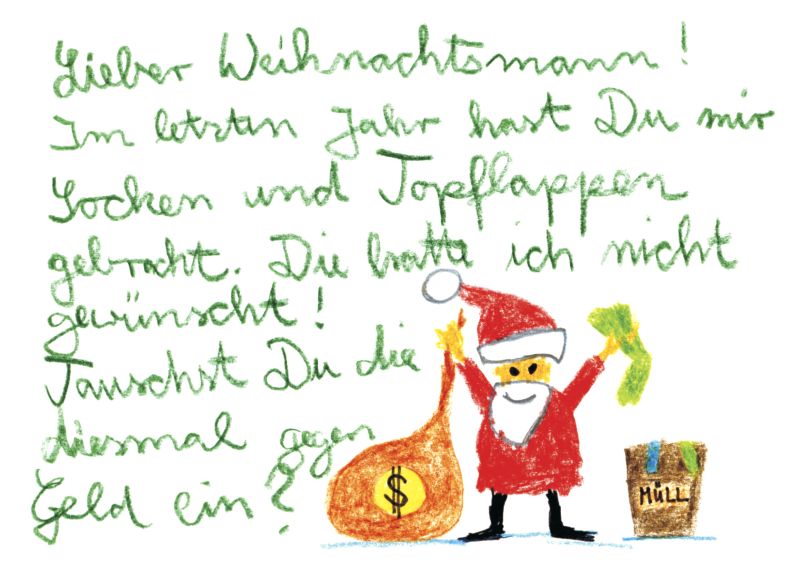 Lieber Weihnachtsmann!
Im letzten Jahr hast Du mir
Socken und Topflappen
gebracht. Die hatte ich nicht
gewünscht!
Tauschst Du die
diesmal gegen
Geld ein?
$
MÜLL